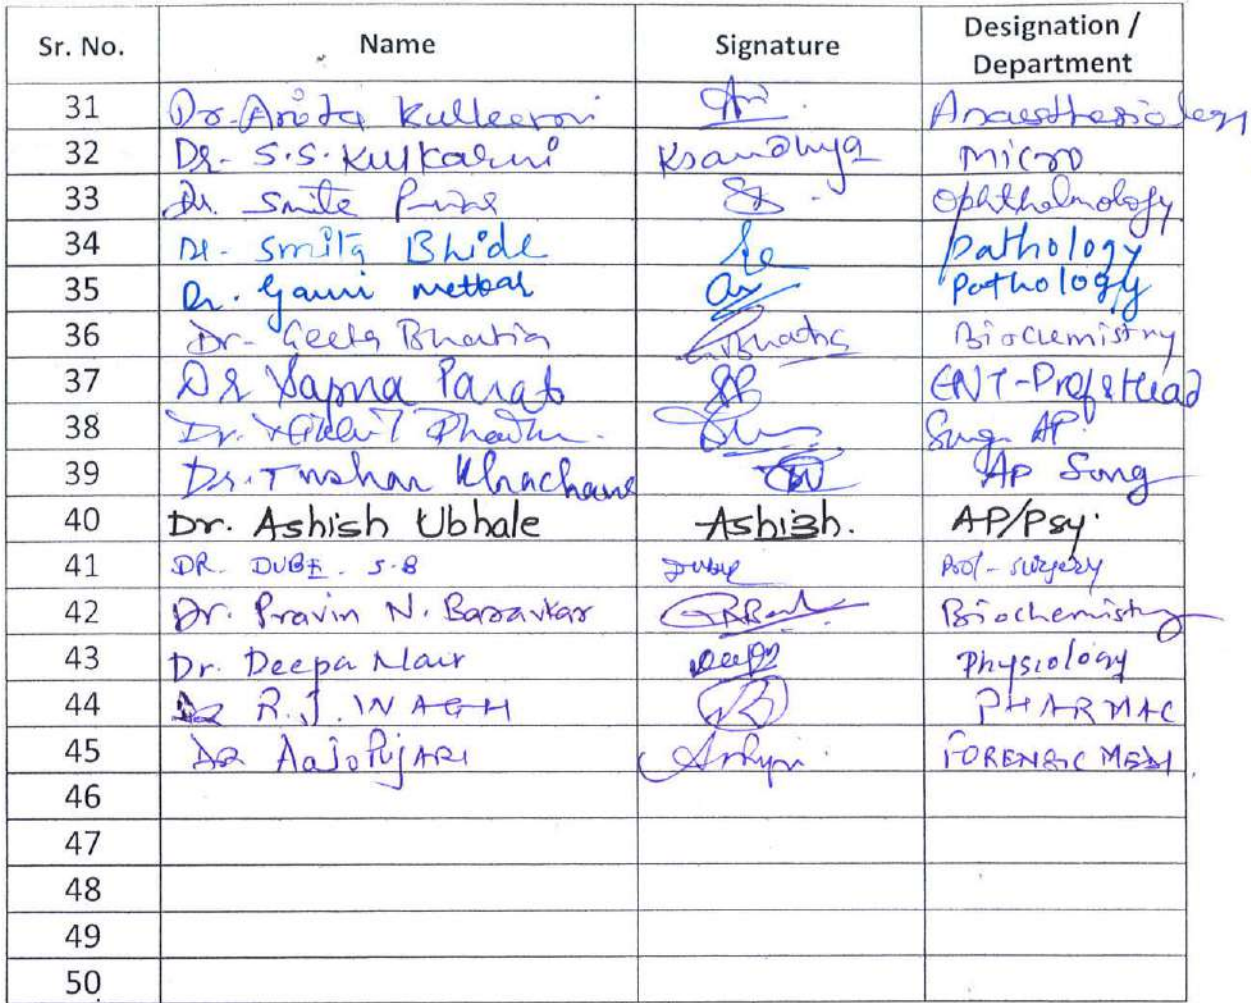 Sr. No. Name Signature Designation / Department
31 Dr. Anita Kulkarni Anaesthesiology
32 Dr. S.S. Kulkarni Ksandhya Micro
33 Dr. Smita Ophthalmology
34 Dr. Smita Bhide Pathology
35 Dr. Gauri Pathology
36 Dr. Geeta Bhatia GBhatia Biochemistry
37 Dr Sapna Parab SP ENT-Prof & Head
38 Dr. Surg. AP.
39 Dr. Tushar Khachane AP Surg
40 Dr. Ashish Ubhale Ashish. AP/Psy.
41 DR. DUBE. S.B Dube Prof - surgery
42 Dr. Pravin N. Baravkar Biochemistry
43 Dr. Deepa Nair Deepa Physiology
44 Dr R.J. WAGH PHARMAC
45 DR PUJARI FORENSIC MEDI
46
47
48
49
50